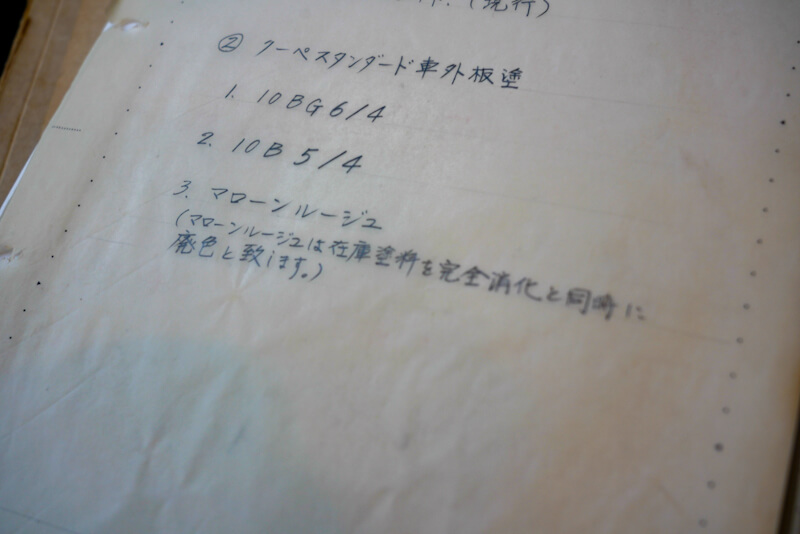 (現行)
② クーペスタンダード車外板塗
1. 10BG6/4
2. 10B 5/4
3. マローンルージュ
(マローンルージュは在庫塗料を完全消化と同時に
廃色と致します。)